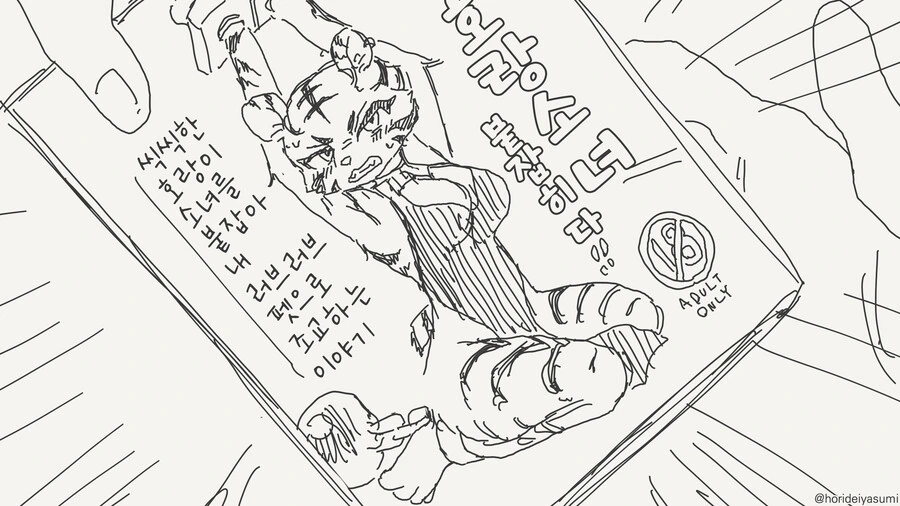 씩씩한
호랑이
소녀를
붙잡아
내
러브러브
펫으로
조교하는
이야기
붙잡히다
ADULT
ONLY
@horideiyasumi